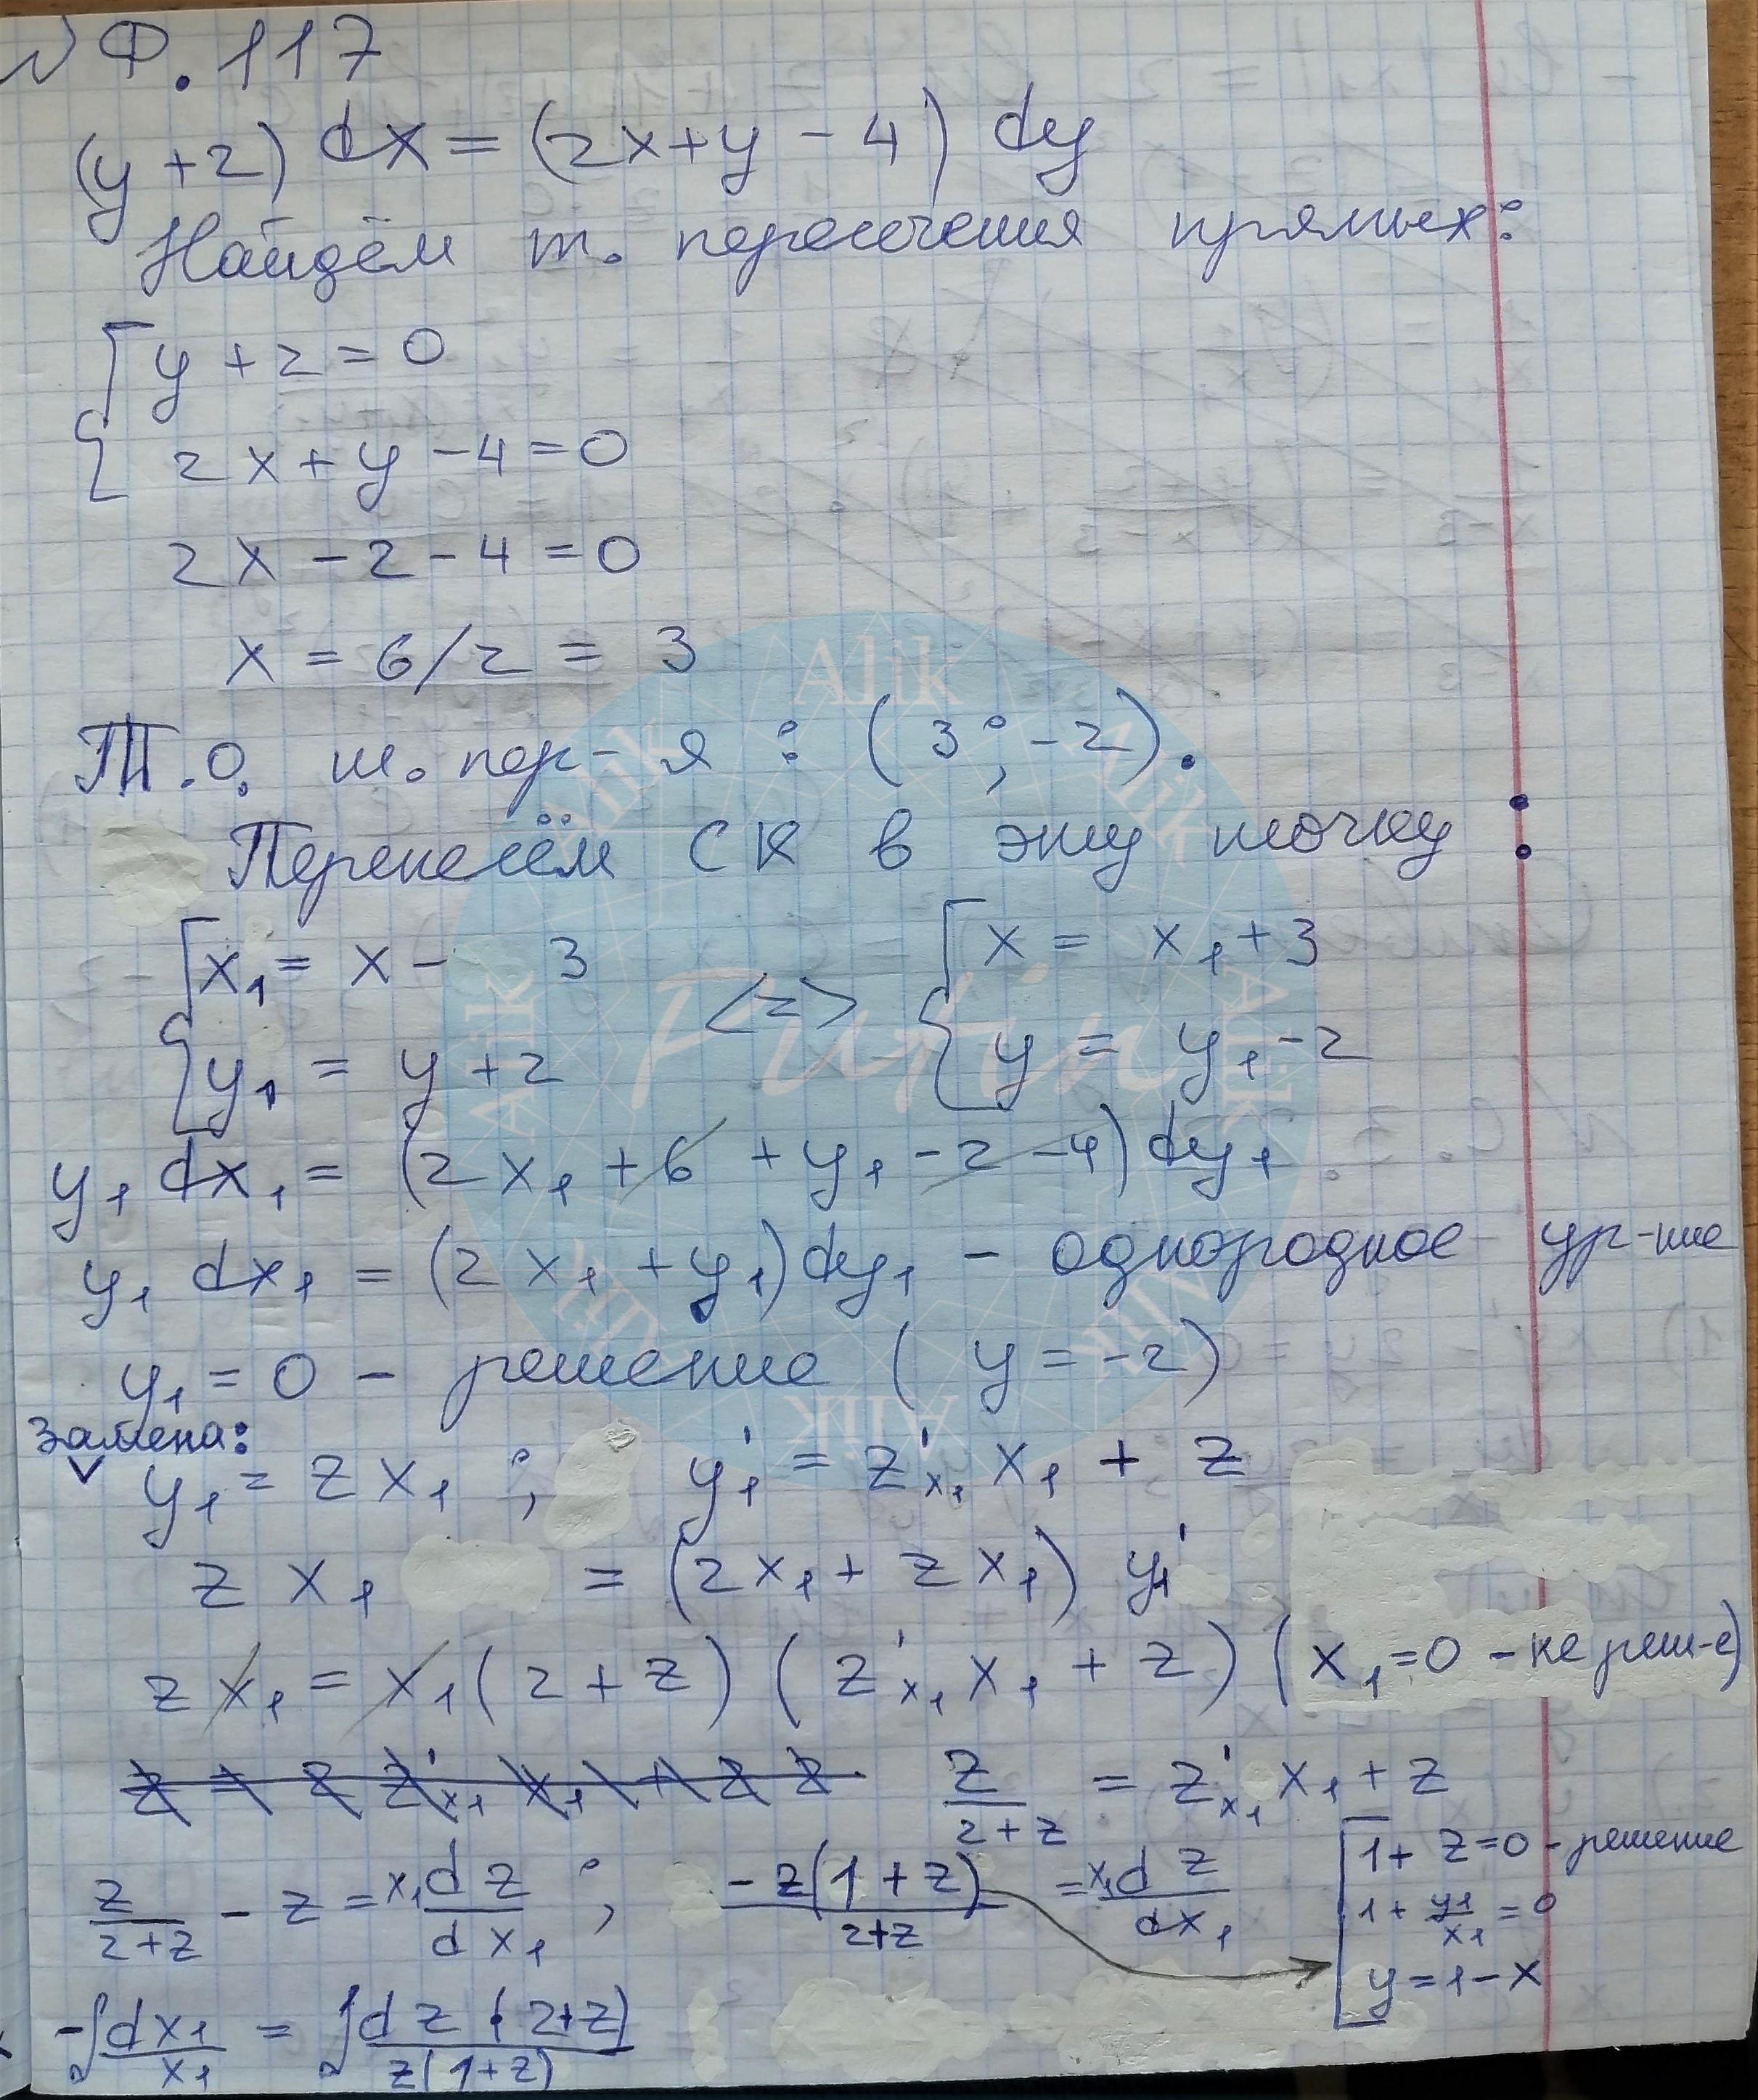 № Ф.117
(y+2) dx = (2x+y-4) dy
Найдём т. пересечения прямых:
y+2=0
2x+y-4=0
2x-2-4=0
x = 6/2 = 3
Т.о. т. пер-я : (3; -2).
Перенесём СК в эту точку :
{x₁ = x - 3 <=> {x = x₁+3
y₁ = y+2 y = y₁-2
y₁ dx₁ = (2x₁ +6 +y₁ -2 -4) dy₁
y₁ dx₁ = (2x₁ + y₁) dy₁ - однородное ур-ние
y₁ = 0 - решение ( y = -2)
Замена:
y₁ = zx₁ ; y₁' = z'x₁ x₁ + z
z x₁ = (2x₁ + zx₁) y₁'
zx₁ = x₁(2+z) (z'x₁ x₁ + z) (x₁=0 - не реш-е)
z = 2 z'x₁ x₁ + 2 z z/(2+z) = z'x₁ x₁ + z
z/(2+z) - z = x₁ dz/dx₁ ; -z(1+z)/(2+z) = x₁ dz/dx₁
1+z=0 - решение
1+ y₁/x₁ = 0
y=1-x
-∫dx₁/x₁ = ∫dz·(2+z)/z(1+z)
Alik Alik Alik Alik Alik Alik Alik Alik
Putin